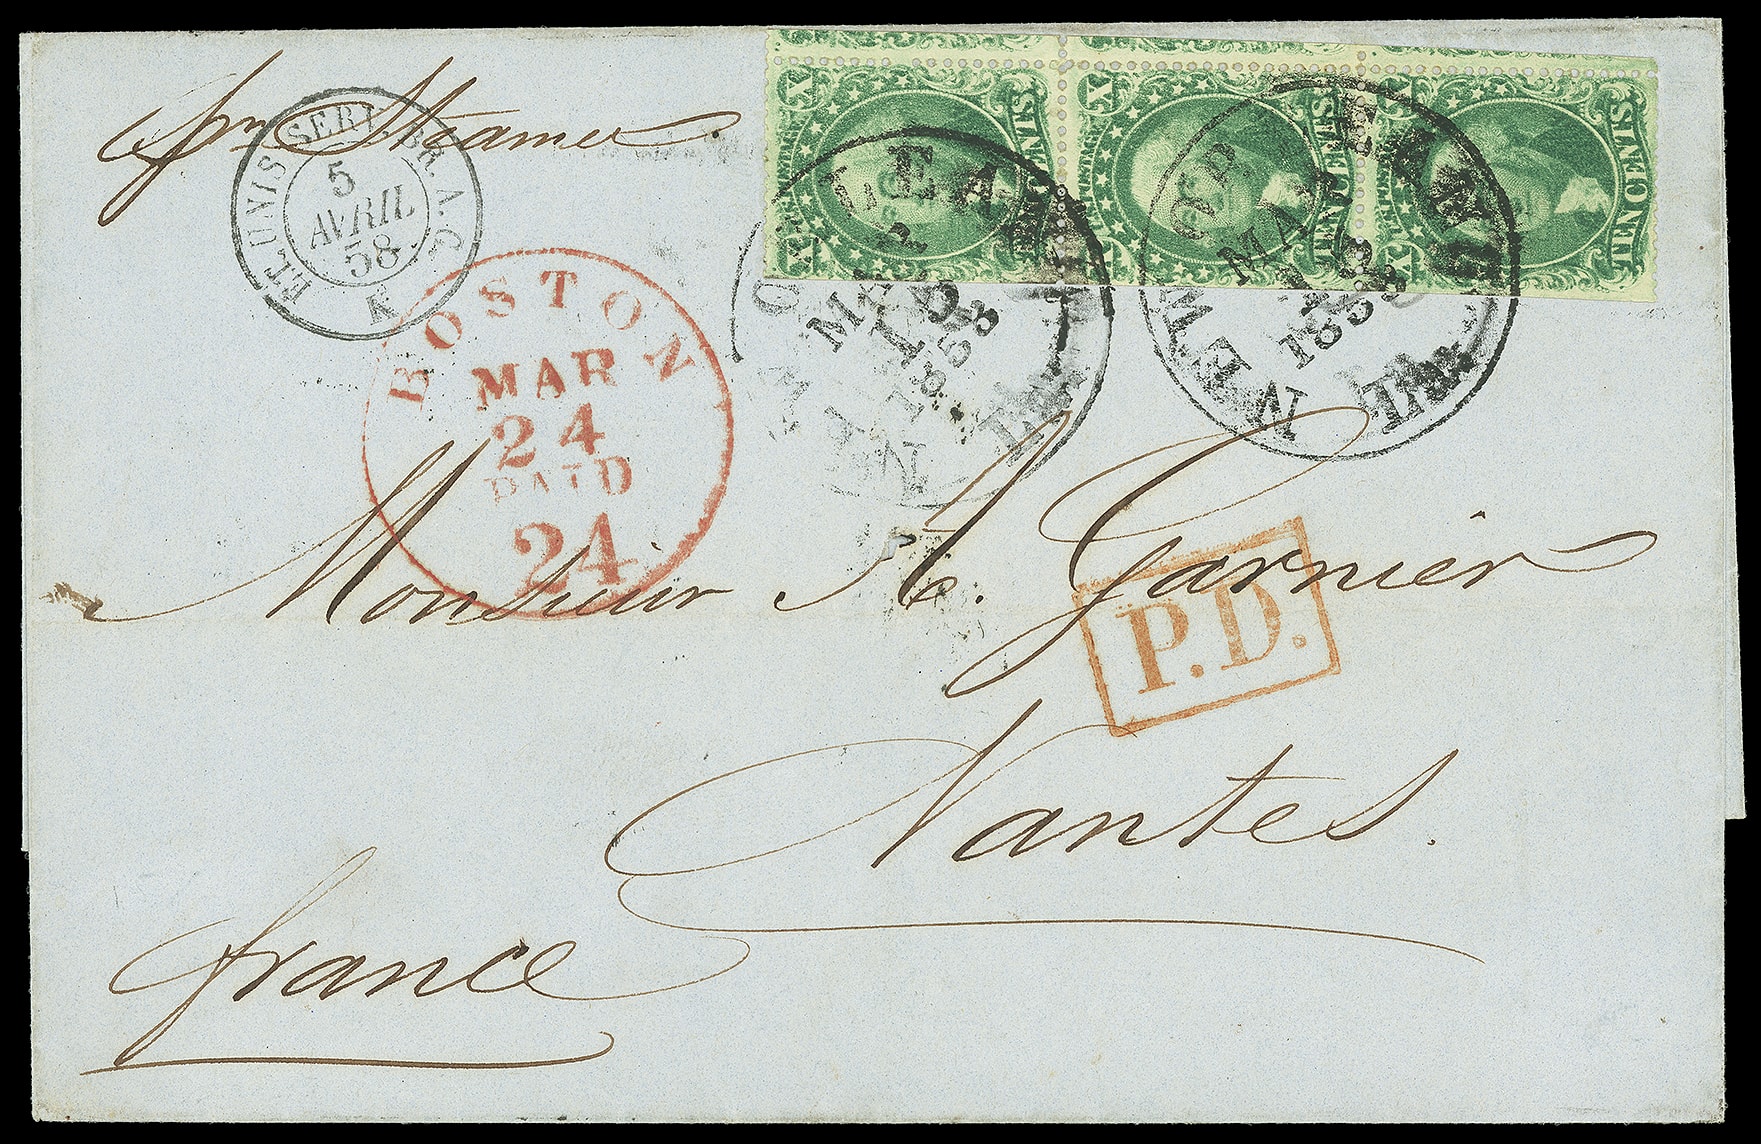 pr Steamer.
ET. UNIS SERV. BR. A. C.
5
AVRIL
58
K
BOSTON
MAR
24
PAID
24
X TEN CENTS X
X TEN CENTS X
X TEN CENTS X
NEW ORLEANS
MAR
1858
NEW ORLEANS
MAR
1858
Monsieur A. Garnier
P.D.
Nantes.
france